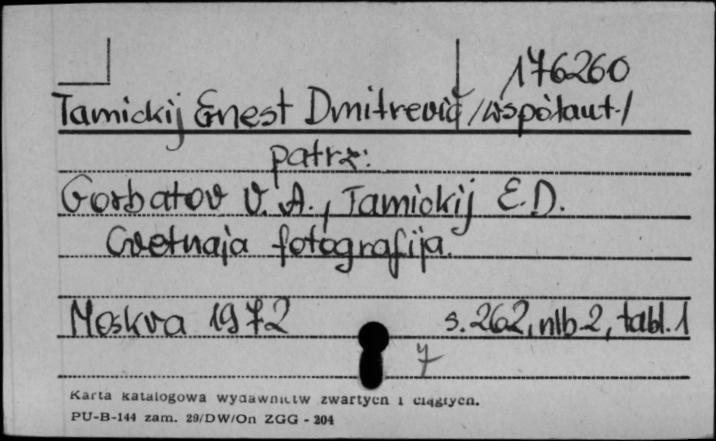 176260
Tamickij Ernest Dmitrevič /współaut./
patrz:
Gorbatov V. A., Tamickij E. D.
Cvetnaja fotografija.
Moskva 1972 s. 262, nlb 2, tabl. 1
7
Karta katalogowa wydawnictw zwartych i ciągłych.
PU-B-144 zam. 29/DW/On ZGG - 204